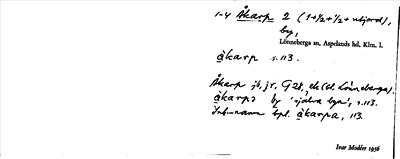 1-4 Åkarp 2 (1+½+½+utjord),
by,
Lönneberga sn, Aspelands hd, Klm. l.
åkarp s. 113.
Åkarp jb, jr, G 28, ek (el Lönneberga).
åkarpa by 'själva byn', s. 113.
Inb.-namn bpl. åkarpa, 113.
Ivar Modéer 1936